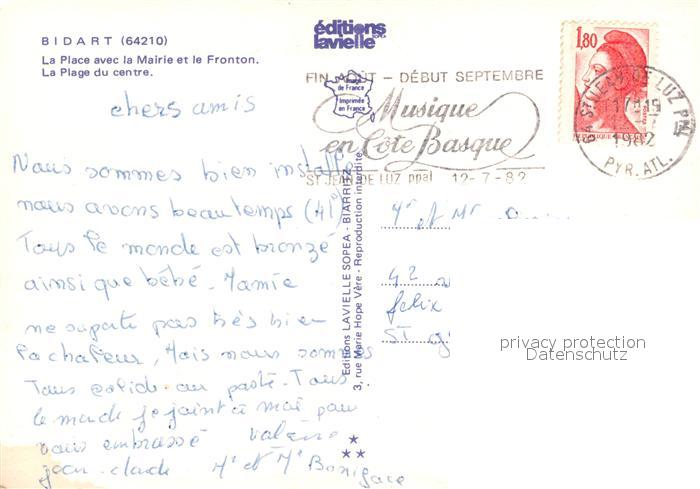 BIDART (64210)
La Place avec la Mairie et le Fronton.
La Plage du centre.
éditions
lavielle
SOPEA
Image
de France
Imprimée
en France
FIN AOUT - DÉBUT SEPTEMBRE
Musique
en Côte Basque
ST JEAN DE LUZ ppal 12-7-82
1,80
64 ST JEAN DE LUZ PPAL
17H15
12-7
1982
PYR. ATL.
chers amis
Nous sommes bien installé
nous avons beau temps (41°)
Tous le monde est bronzé
ainsi que bébé. Mamie
ne suporte pas très bien
la chaleur, Mais nous sommes
Tous solide au poste. Tous
le monde se joint à moi pour
vous embrassé Valérie
jean-claude Mr et Me Bonigace
Editions LAVIELLE SOPEA - BIARRITZ
3, rue Marie Hope Vère - Reproduction interdite
et Mr
42
felix
ST
privacy protection
Datenschutz